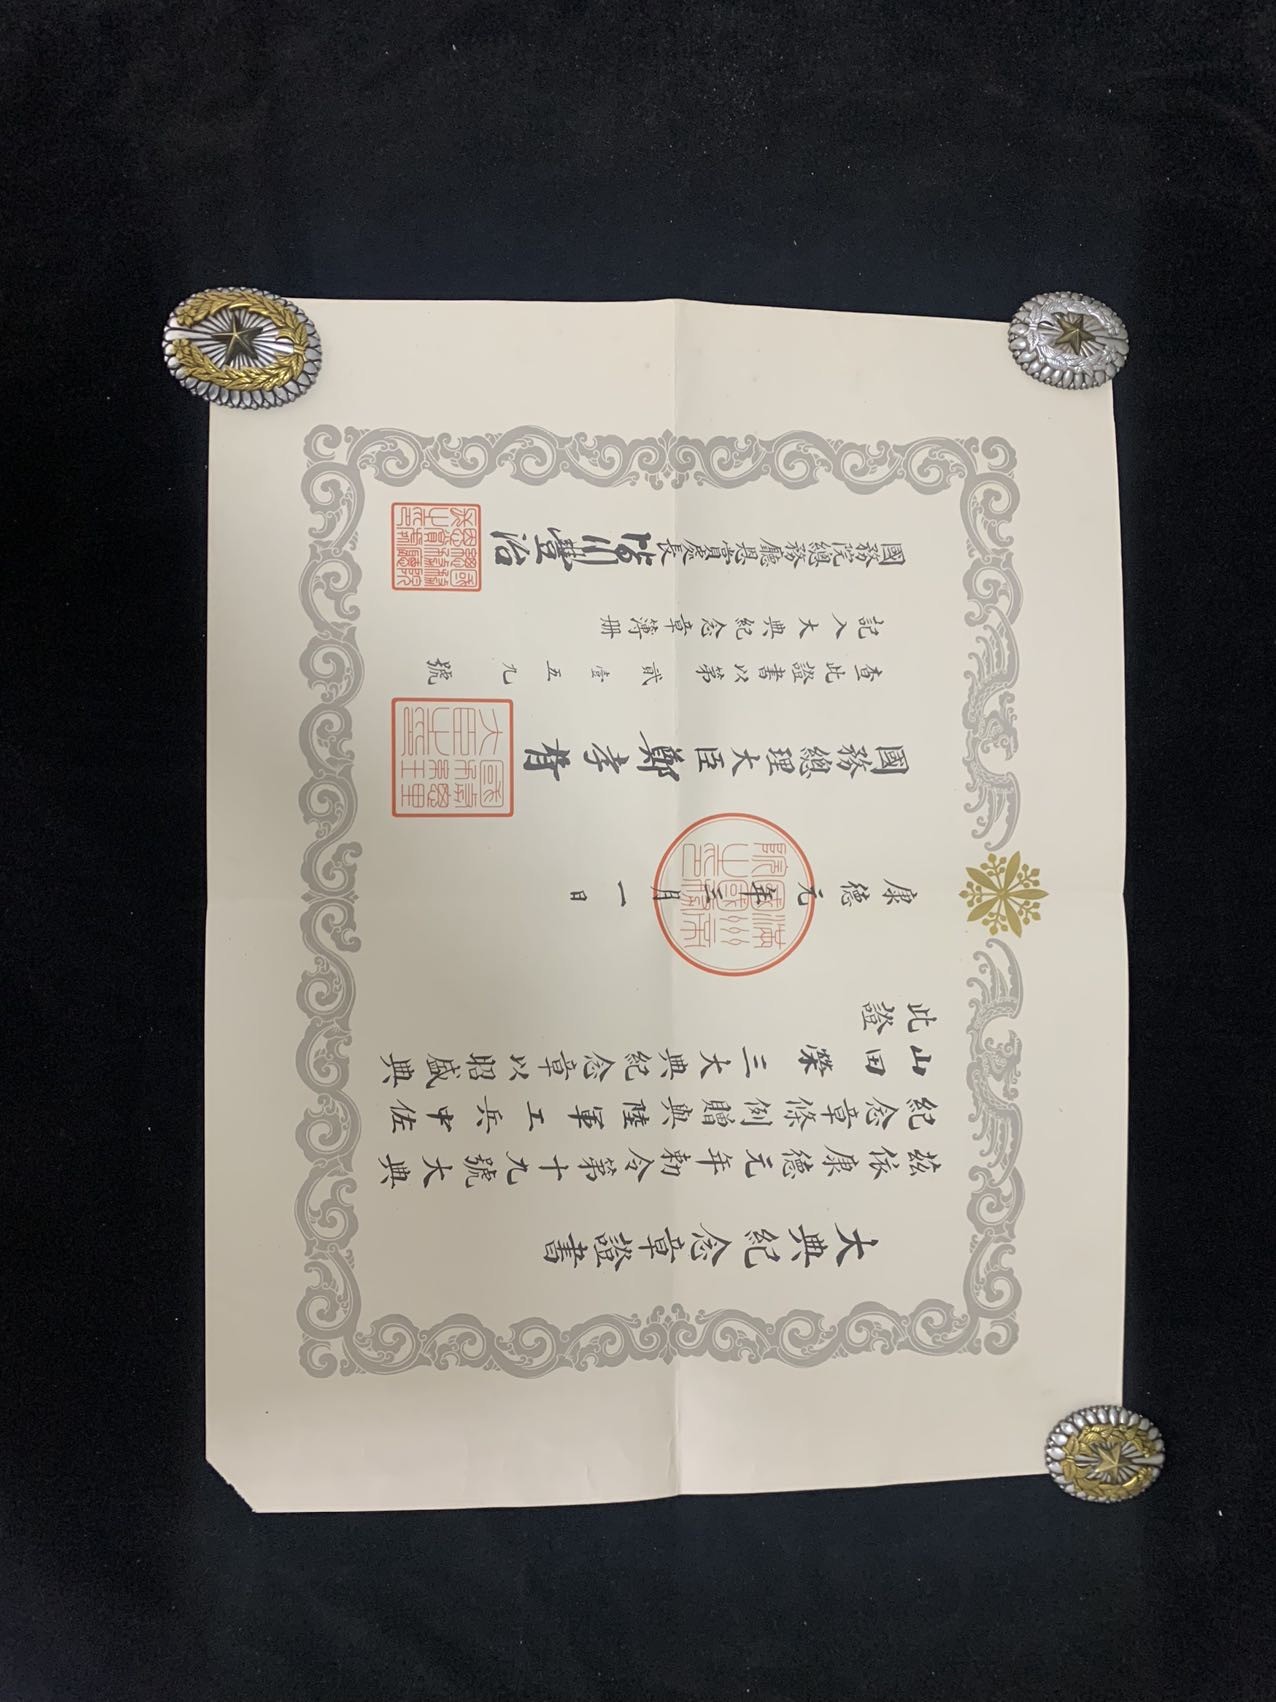 大典紀念章證書
茲依康德元年勅令第十九號大典
紀念章條例贈與陸軍工兵中佐
山田榮三大典紀念章以昭盛典
此證
康德元年三月一日
國務總理大臣鄭孝胥
國務總理大臣之印
查此證書以第貳壹五九號
記入大典紀念章簿冊
國務院總務廳恩賞處長皆川豐治